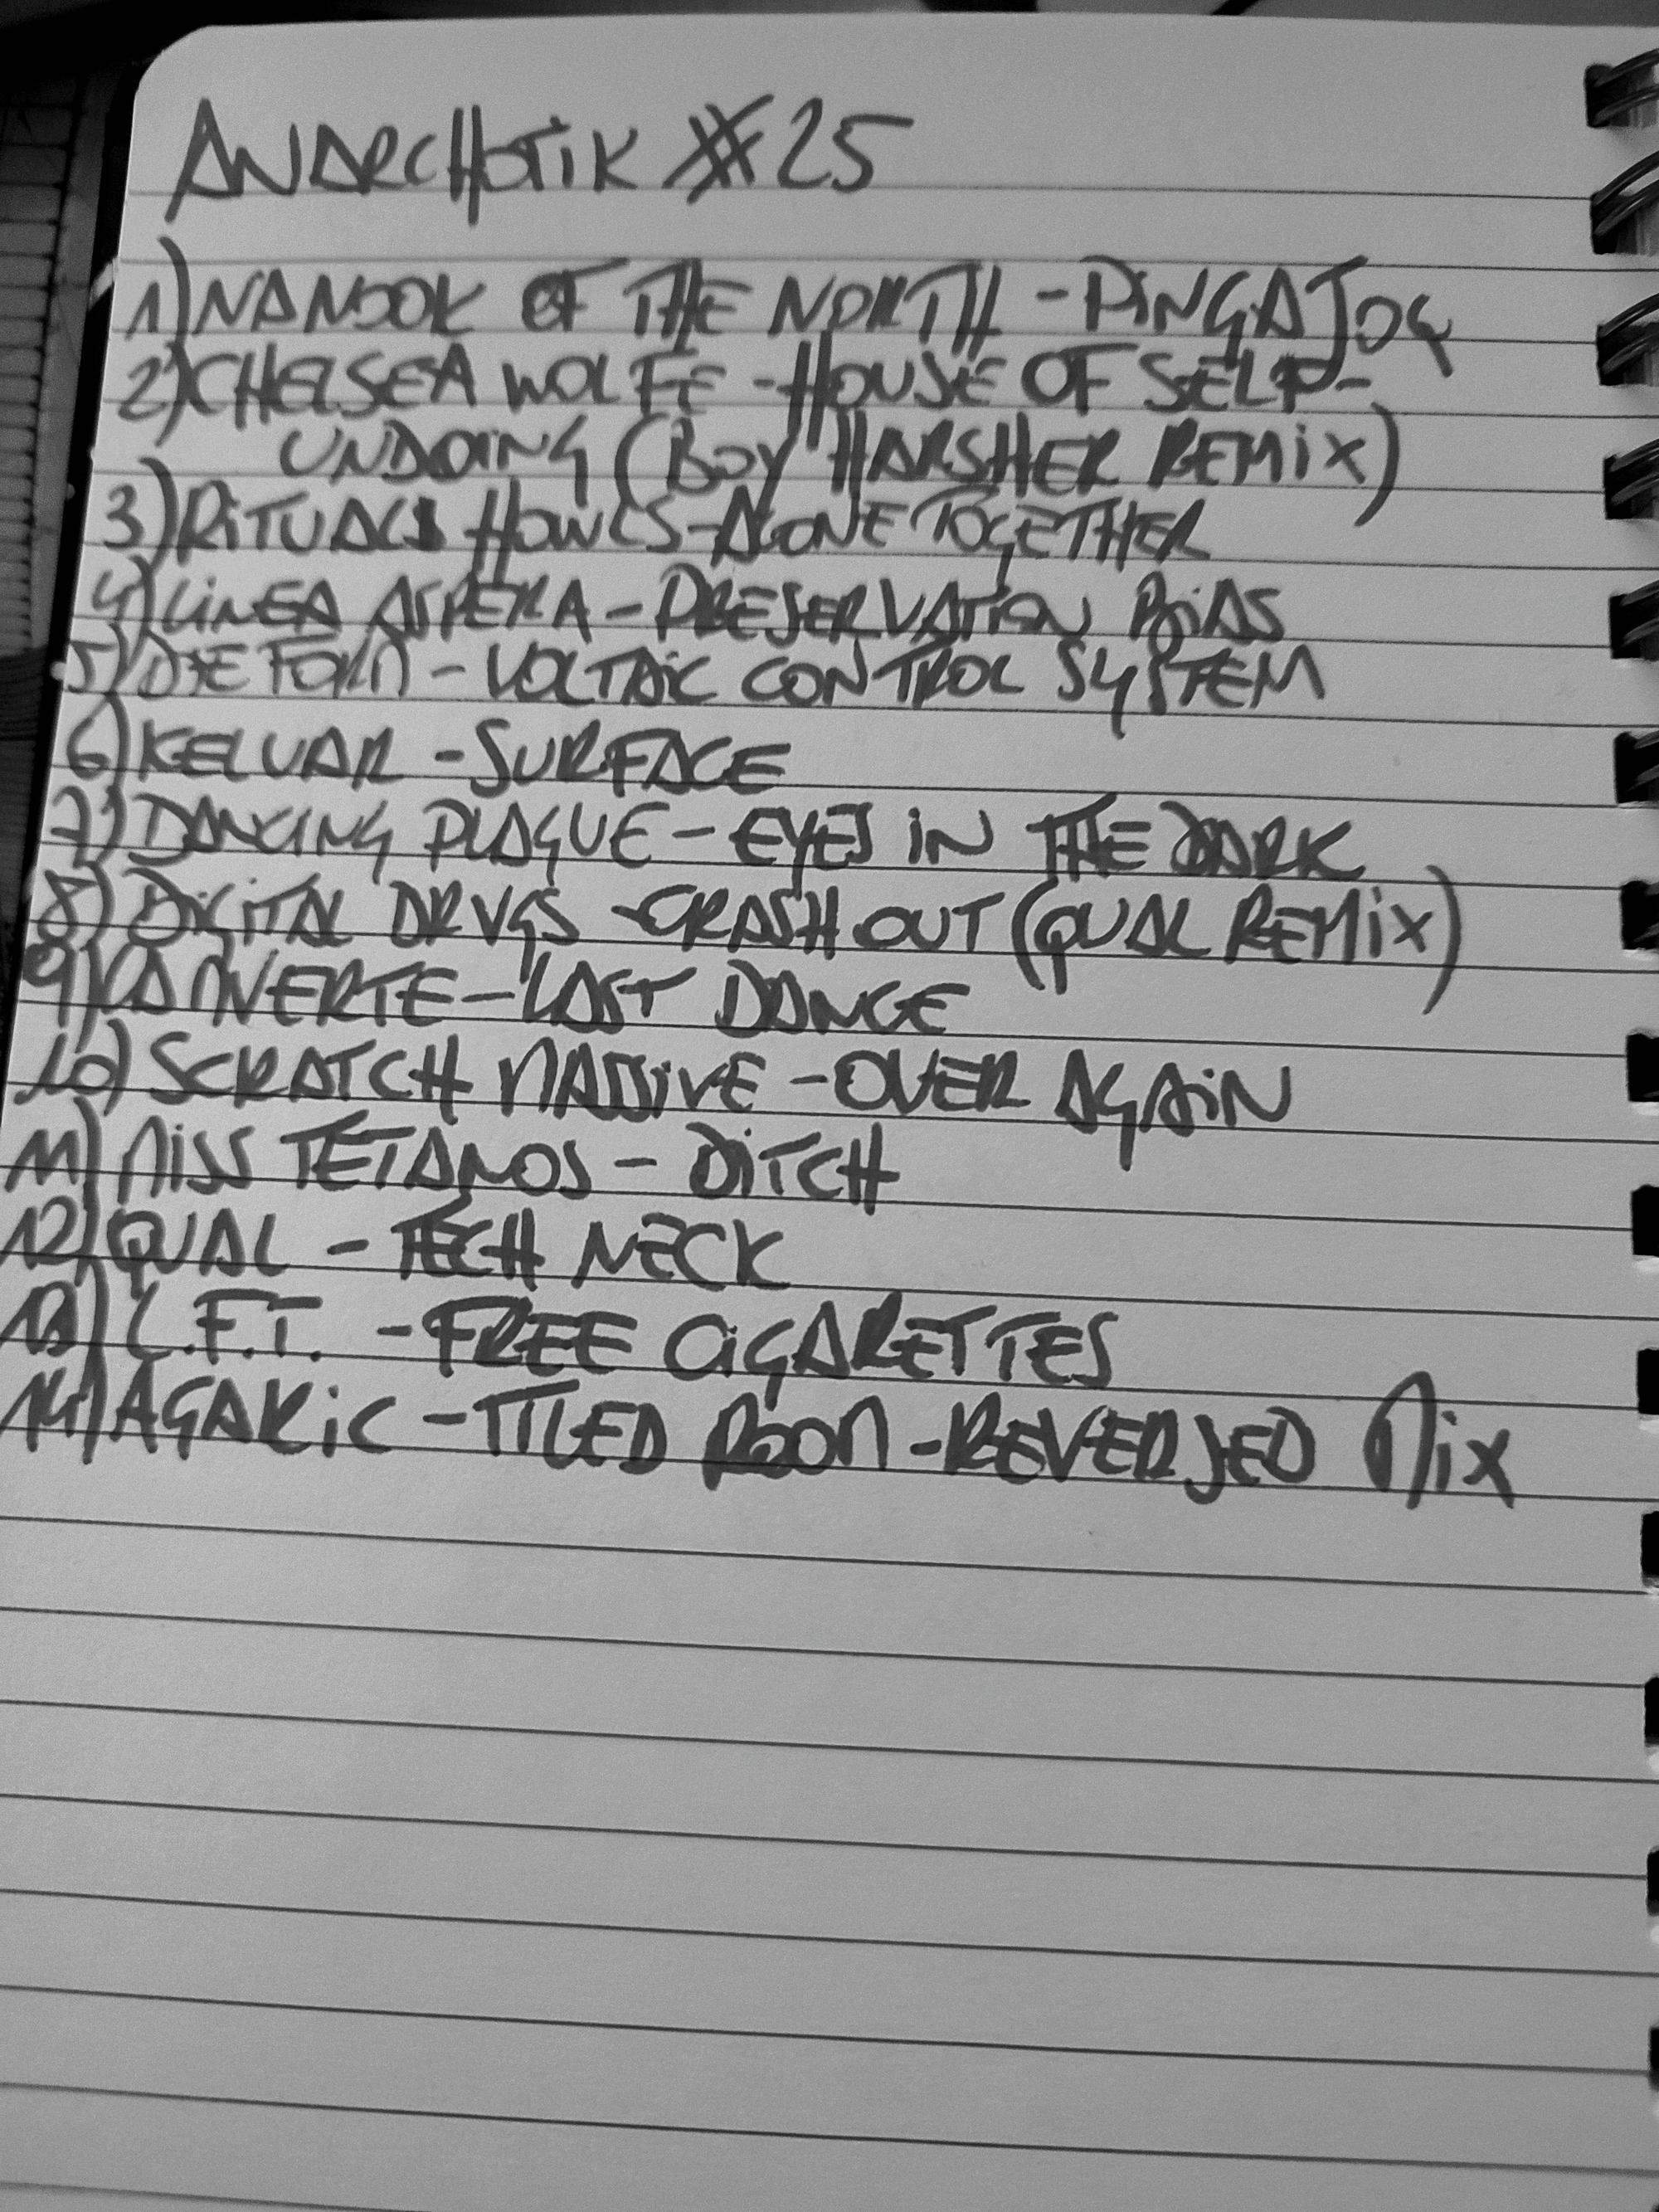 ANARCHOTIK #25
1) NANOOK OF THE NORTH - PINGAJOQ
2) CHELSEA WOLFE - HOUSE OF SELF-
UNDOING (BOY HARSHER REMIX)
3) RITUALS HOWLS - ALONE TOGETHER
4) LINEA ASPERA - PRESERVATION BIAS
5) DIE FORM - VOLTAIC CONTROL SYSTEM
6) KELUAR - SURFACE
7) DANCING PLAGUE - EYES IN THE DARK
8) DIGITAL DRVGS - CRASH OUT (QUAL REMIX)
9) - LAST DANCE
10) SCRATCH MASSIVE - OVER AGAIN
11) MISS TETANOS - DITCH
12) QUAL - TECH NECK
13) L.F.T. - FREE CIGARETTES
14) AGARIC - TILED ROOM - REVERSED MIX